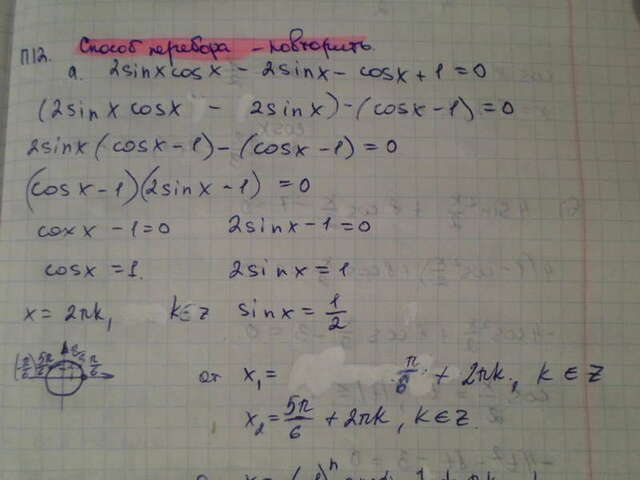 п12. Способ перебора – повторить.
а. 2sinx cosx – 2sinx – cosx + 1 = 0
(2sinx cosx – 2sinx) – (cosx – 1) = 0
2sinx (cosx – 1) – (cosx – 1) = 0
(cosx – 1)(2sinx – 1) = 0
coxx – 1 = 0 2sinx – 1 = 0
cosx = 1. 2sinx = 1
x = 2πk, k ∈ z sinx = 1/2
5π/6 π/6
x₁ = π/6 + 2πk, k ∈ Z
x₂ = 5π/6 + 2πk, k ∈ Z.